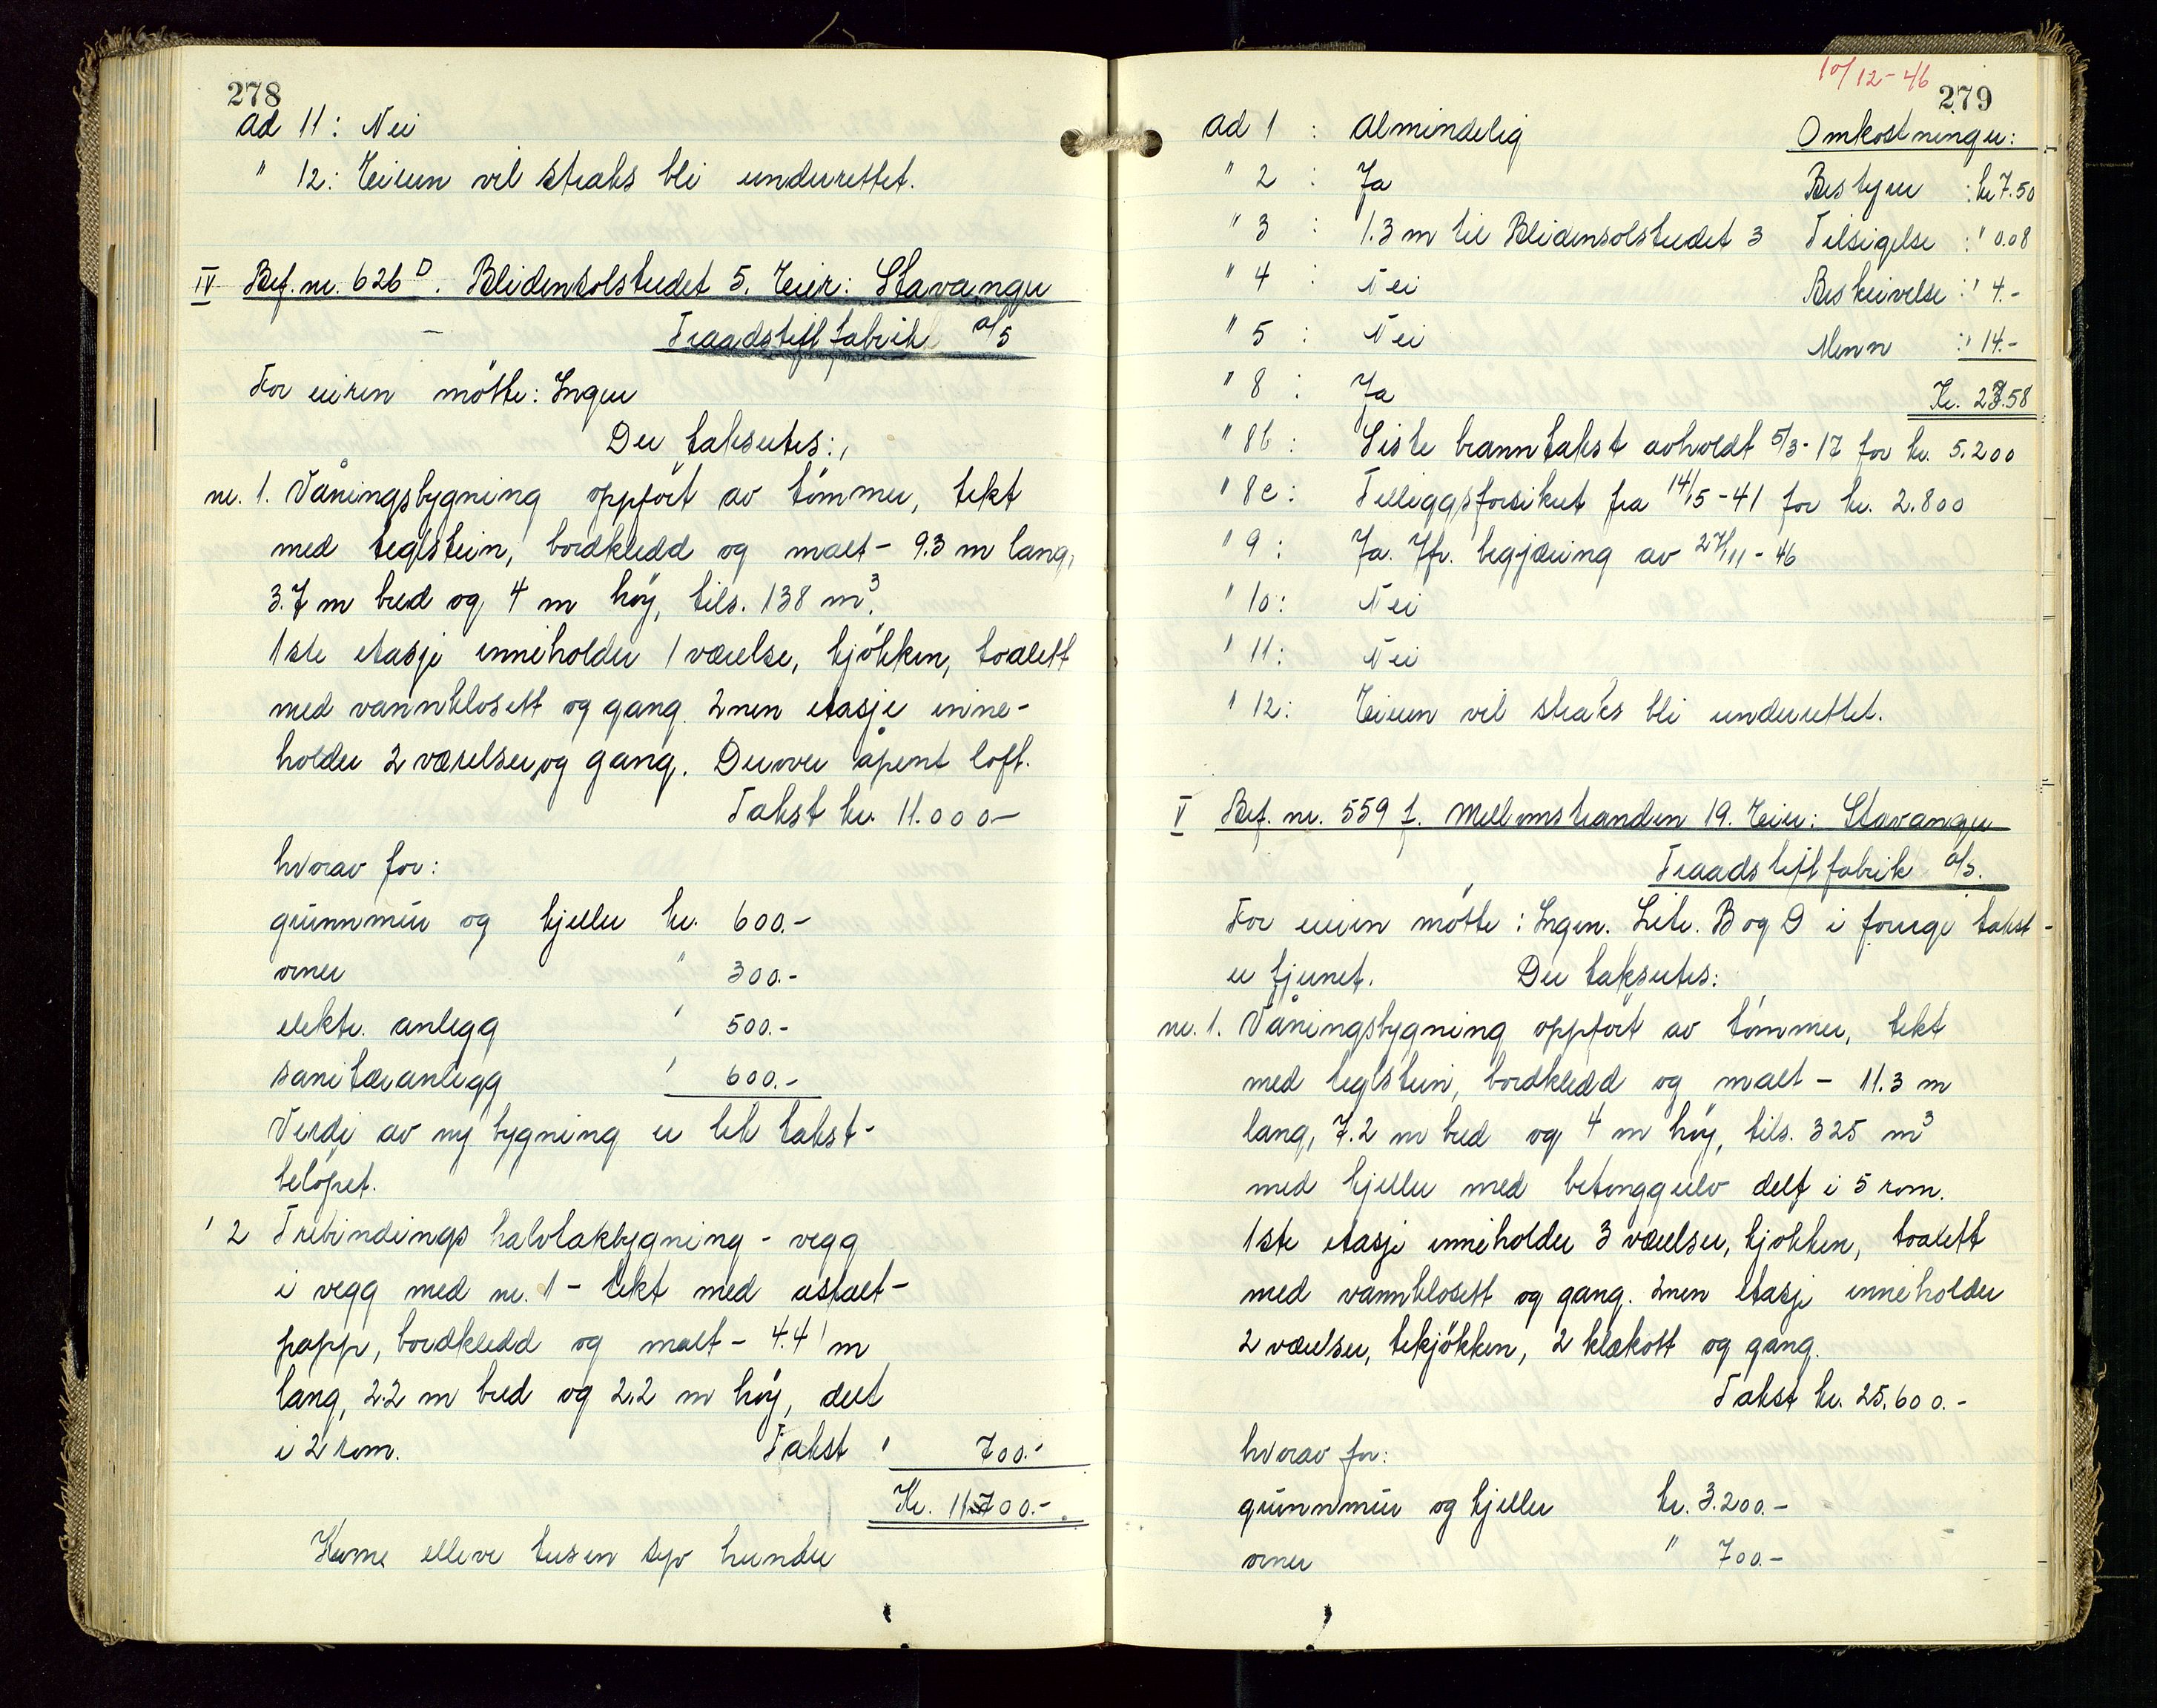 278
ad 11: Nei
" 12: Eieren vil straks bli underrettet.
IV Bef. nr. 626 D. Blidensolstredet 5. Eier: Stavanger
Traadstiftfabrik a/s
For eieren møtte: Ingen
Der takseertes:
nr. 1. Våningsbygning oppført av tømmer, tekt
med teglstein, bordkledd og malt - 9.3 m lang,
3.7 m bred og 4 m høy, tils. 138 m³.
1ste etasje inneholder 1 værelse, kjøkken, toalett
med vannklosett og gang. 2nen etasje inne-
holder 2 værelser og gang. Derover åpent loft.
Takst kr. 11.000-
hvorav for:
grunnmur og kjeller kr. 600.-
ovner " 300.-
elektr. anlegg " 500.-
sanitæranlegg " 600.-
Verdi av ny bygning er lik takst-
beløpet.
" 2 Trebindings halvtakbygning - vegg
i vegg med nr. 1 - tekt med asfalt-
papp, bordkledd og malt - 4.4 m
lang, 2.2 m bred og 2,2 m høy, delt
i 2 rom. Takst " 700.-
Kr. 11.700.-
Krone elleve tusen syv hundre
10/12-46
279
ad 1 : Almindelig Omkostninger:
" 2 : Ja Bestyrer : kr 7.50
" 3 : 1.3 m til Blidensolstredet 3 Tilsigelse : " 0.08
" 4 : Nei Beskrivelse : " 4.-
" 5 : Nei Menn : " 14.-
" 8 : Ja Kr. 27.58
" 8b : Siste branntakst avholdt 5/3-17 for kr. 5.200
" 8c : Tilleggsforsikret fra 14/5-41 for kr. 2.800
" 9 : Ja. Jfr. begjæring av 27/11-46
" 10: Nei
" 11: Nei
" 12: Eieren vil straks bli underrettet.
V Bef. nr. 559 f. Mellemstranden 19. Eier: Stavanger
Traadstiftfabrik a/s.
For eieren møtte: Ingen. Litr. B og D i forrige takst
er fjernet. Der takseertes:
nr. 1. Våningsbygning oppført av tømmer, tekt
med teglstein, bordkledd og malt - 11.3 m
lang, 7.2 m bred og 4 m høy, tils. 325 m³
med kjeller med betonggulv delt i 5 rom.
1ste etasje inneholder 3 værelser, kjøkken, toalett
med vannklosett og gang. 2nen etasje inneholder
2 værelser, tekjøkken, 2 klækott og gang.
Takst kr. 25.600.-
hvorav for:
grunnmur og kjeller kr. 3.200.-
ovner " 700.-